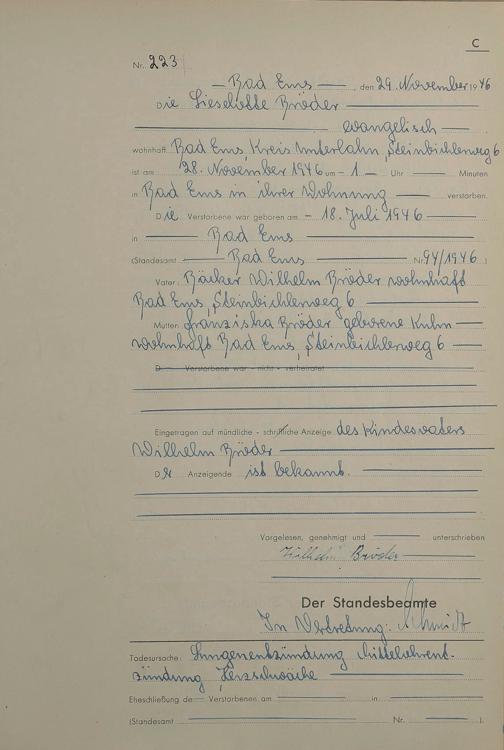 C
Nr. 223
Bad Ems, den 29. November 1946
Die Lieselotte Bröder
evangelisch
wohnhaft Bad Ems, Kreis Unterlahn, Steinbichlerweg 6
ist am 28. November 1946 um - 1 - Uhr Minuten
in Bad Ems in ihrer Wohnung verstorben.
Die Verstorbene war geboren am - 18. Juli 1946
in Bad Ems
(Standesamt Bad Ems Nr. 94/1946)
Vater: Bäcker Wilhelm Bröder wohnhaft
Bad Ems, Steinbichlerweg 6
Mutter: Franziska Bröder geborene Kuhn
wohnhaft Bad Ems, Steinbichlerweg 6
D Verstorbene war - nicht - verheiratet
Eingetragen auf mündliche - schriftliche Anzeige des Kindesvaters
Wilhelm Bröder
Der Anzeigende ist bekannt.
Vorgelesen, genehmigt und unterschrieben
Wilhelm Bröder
Der Standesbeamte
In Vertretung: Schmidt
Todesursache: Lungenentzündung Mittelohrent-
zündung Herzschwäche
Eheschließung de Verstorbenen am in
(Standesamt Nr. ).